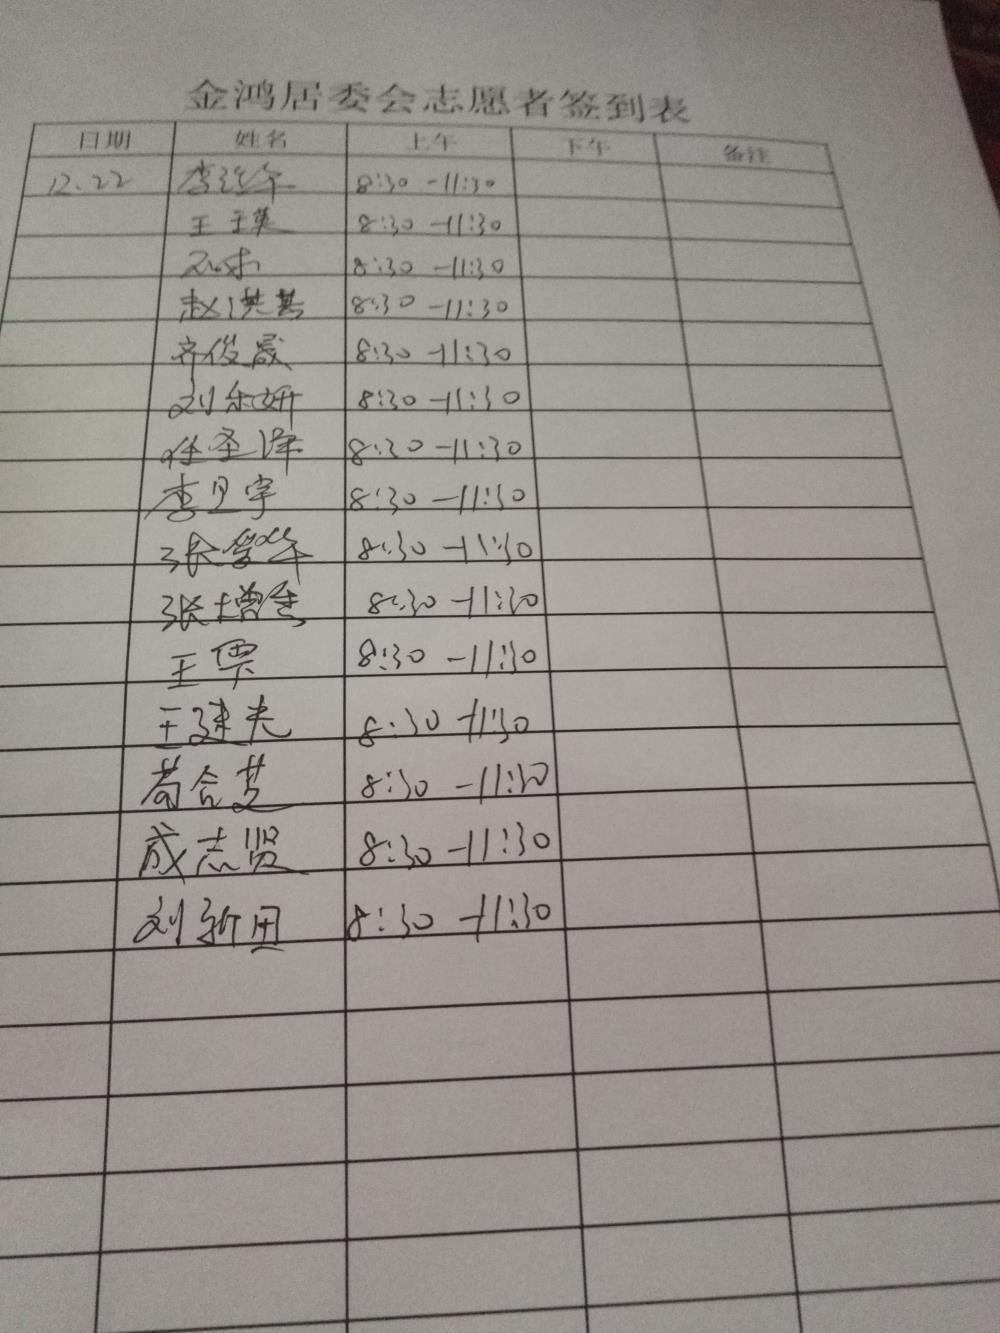 金鸿居委会志愿者签到表
日期 姓名 上午 下午 备注
12.22 李 8:30-11:30
王玉英 8:30-11:30
8:30-11:30
赵洪其 8:30-11:30
齐俊晟 8:30-11:30
刘东妍 8:30-11:30
任圣泽 8:30-11:30
李卫宇 8:30-11:30
张学华 8:30-11:30
张增 8:30-11:30
王票 8:30-11:30
王建夫 8:30-11:30
苟合芝 8:30-11:30
成志贤 8:30-11:30
刘新田 8:30-11:30